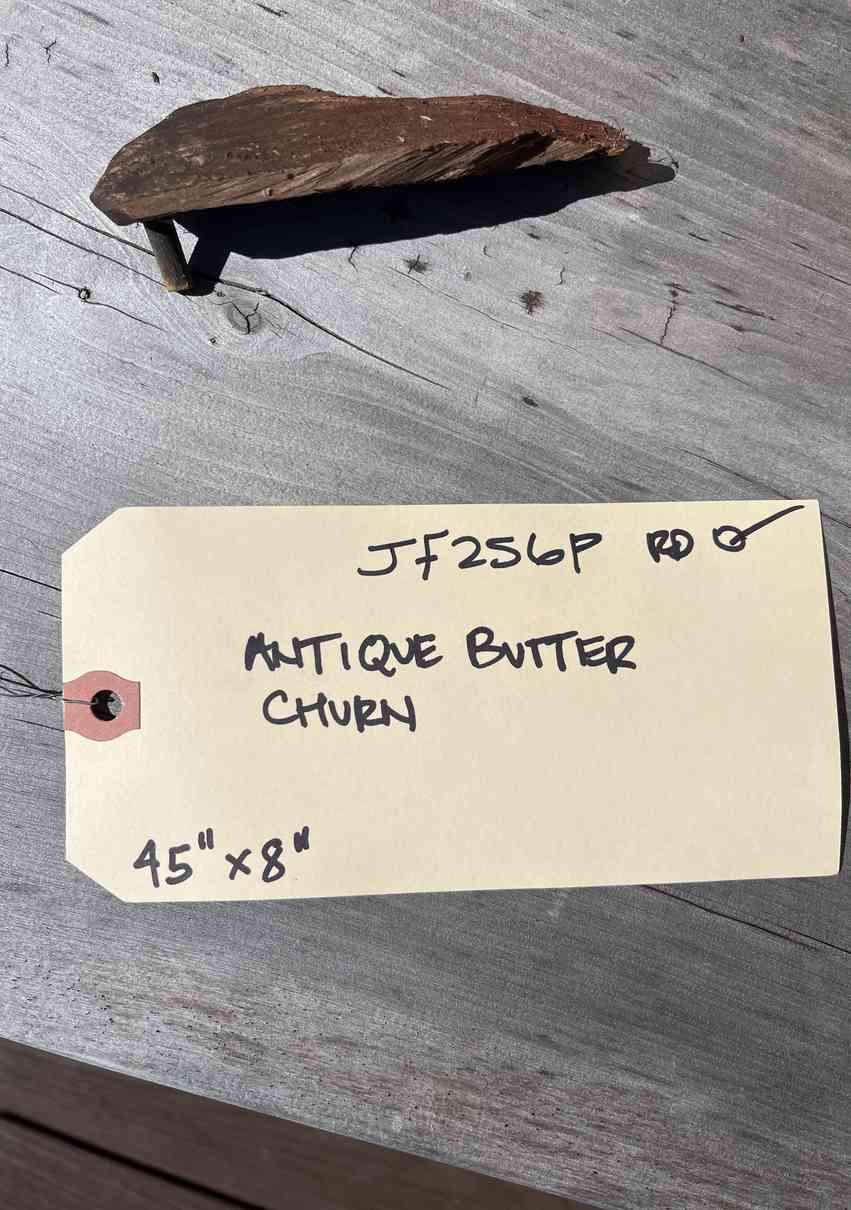 JF256P RD
ANTIQUE BUTTER
CHURN
45" x 8"